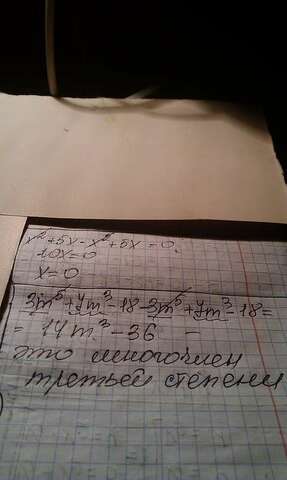 x² + 5x - x² + 5x = 0.
10x = 0
x = 0
3m⁵ + 7m³ - 18 - 3m⁵ + 7m³ - 18 =
= 14m³ - 36 -
это многочлен
третьей степени